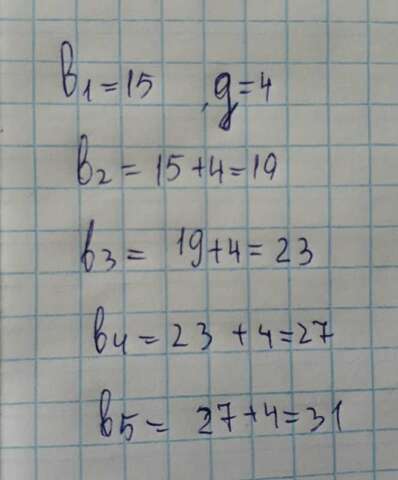 b1=15 ,g=4
b2=15+4=19
b3=19+4=23
b4=23+4=27
b5=27+4=31